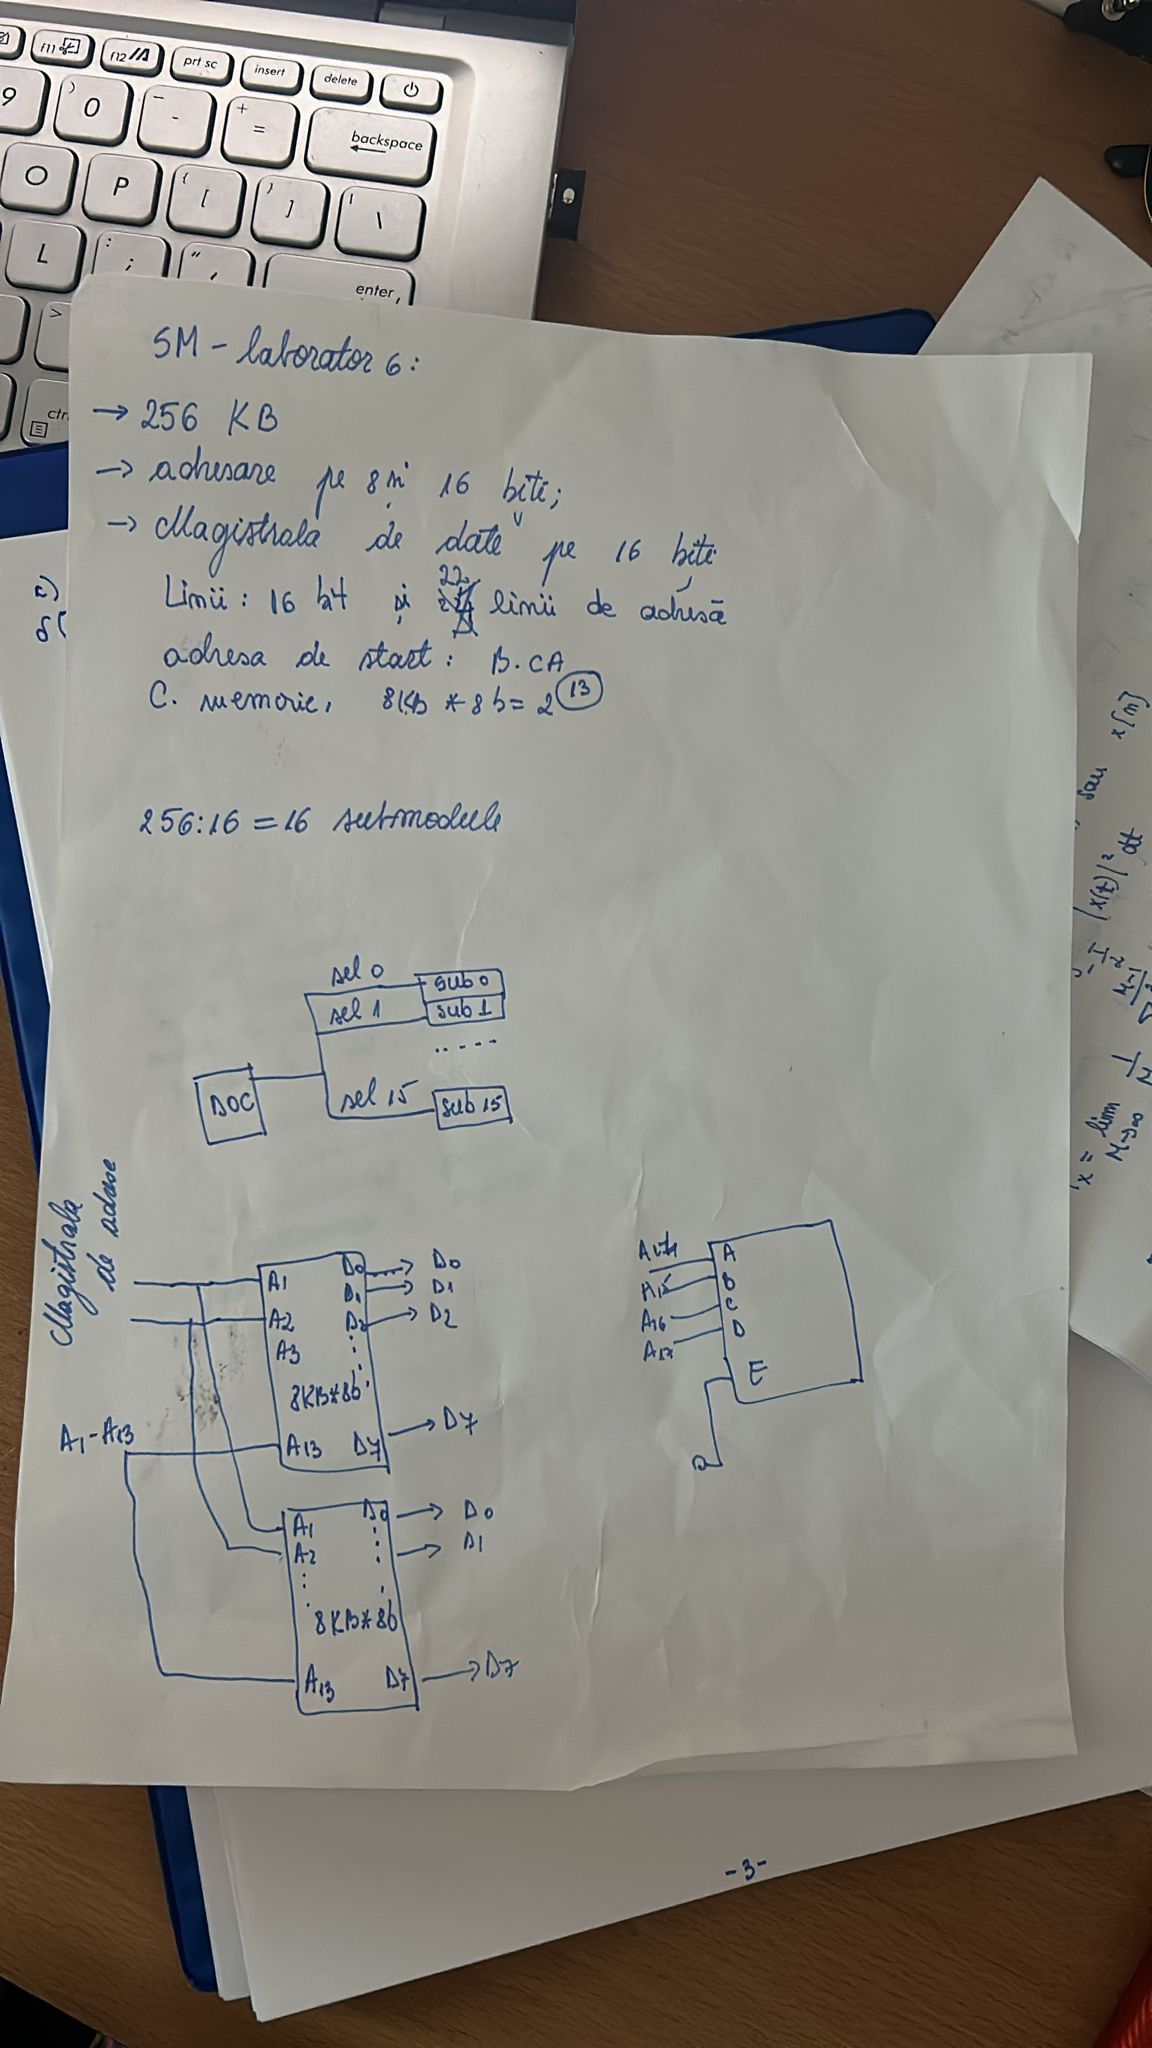 f11
f12
prt sc
insert
delete
9
) 0
_ -
+ =
backspace
O
P
{ [
} ]
\
L
: ;
" '
enter
>
ctrl
SM - laborator 6:
→ 256 KB
→ adresare pe 8 și 16 biți;
→ Magistrala de date pe 16 biți
Linii: 16 bit și 22 linii de adresă
adresa de start: B.CA
C. memorie, 8KB * 8b = 2 13
256:16 = 16 submodule
sel 0 sub 0
sel 1 sub 1
.....
DOC
sel 15 sub 15
Magistrala
de adrese
A1 D0 → D0
D1 → D1
A2 D2 → D2
A3
8KB*8b
A1-A13
A13 D7 → D7
A1 D0 → D0
A2 → D1
8KB*8b
A13 D7 → D7
A
A15 B
A16 C
D
E
c)
sau x[n]
|x(t)|² dt
x = lim
M→∞
-3-